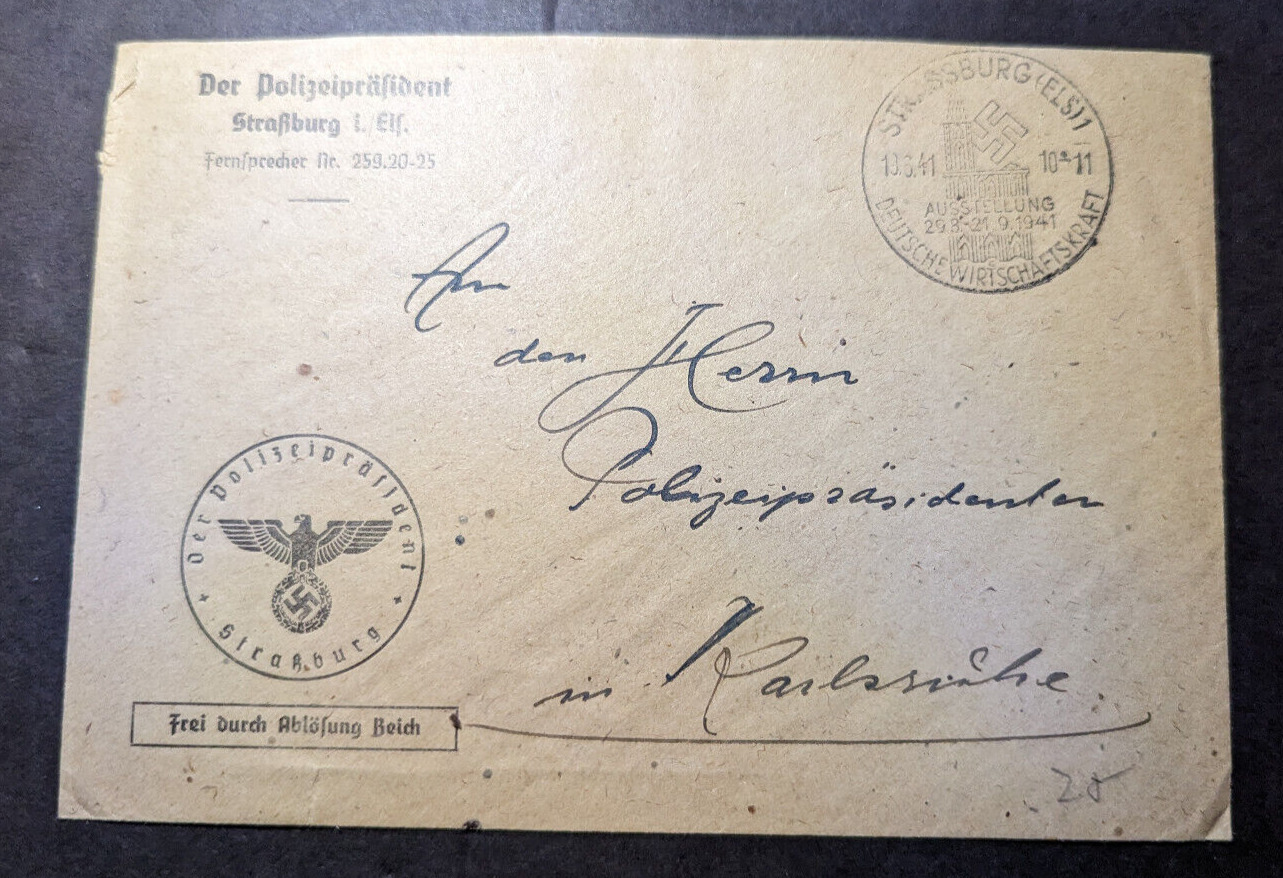 Der Polizeipräsident
Straßburg i. Els.
Fernsprecher Nr. 259.20-25
STRASSBURG (ELS) 1
19.8.41 10-11
AUSSTELLUNG
29.8.-21.9.1941
DEUTSCHE WIRTSCHAFTSKRAFT
An
den Herrn
Polizeipräsidenten
in Karlsruhe.
Der Polizeipräsident
Straßburg
Frei durch Ablösung Reich